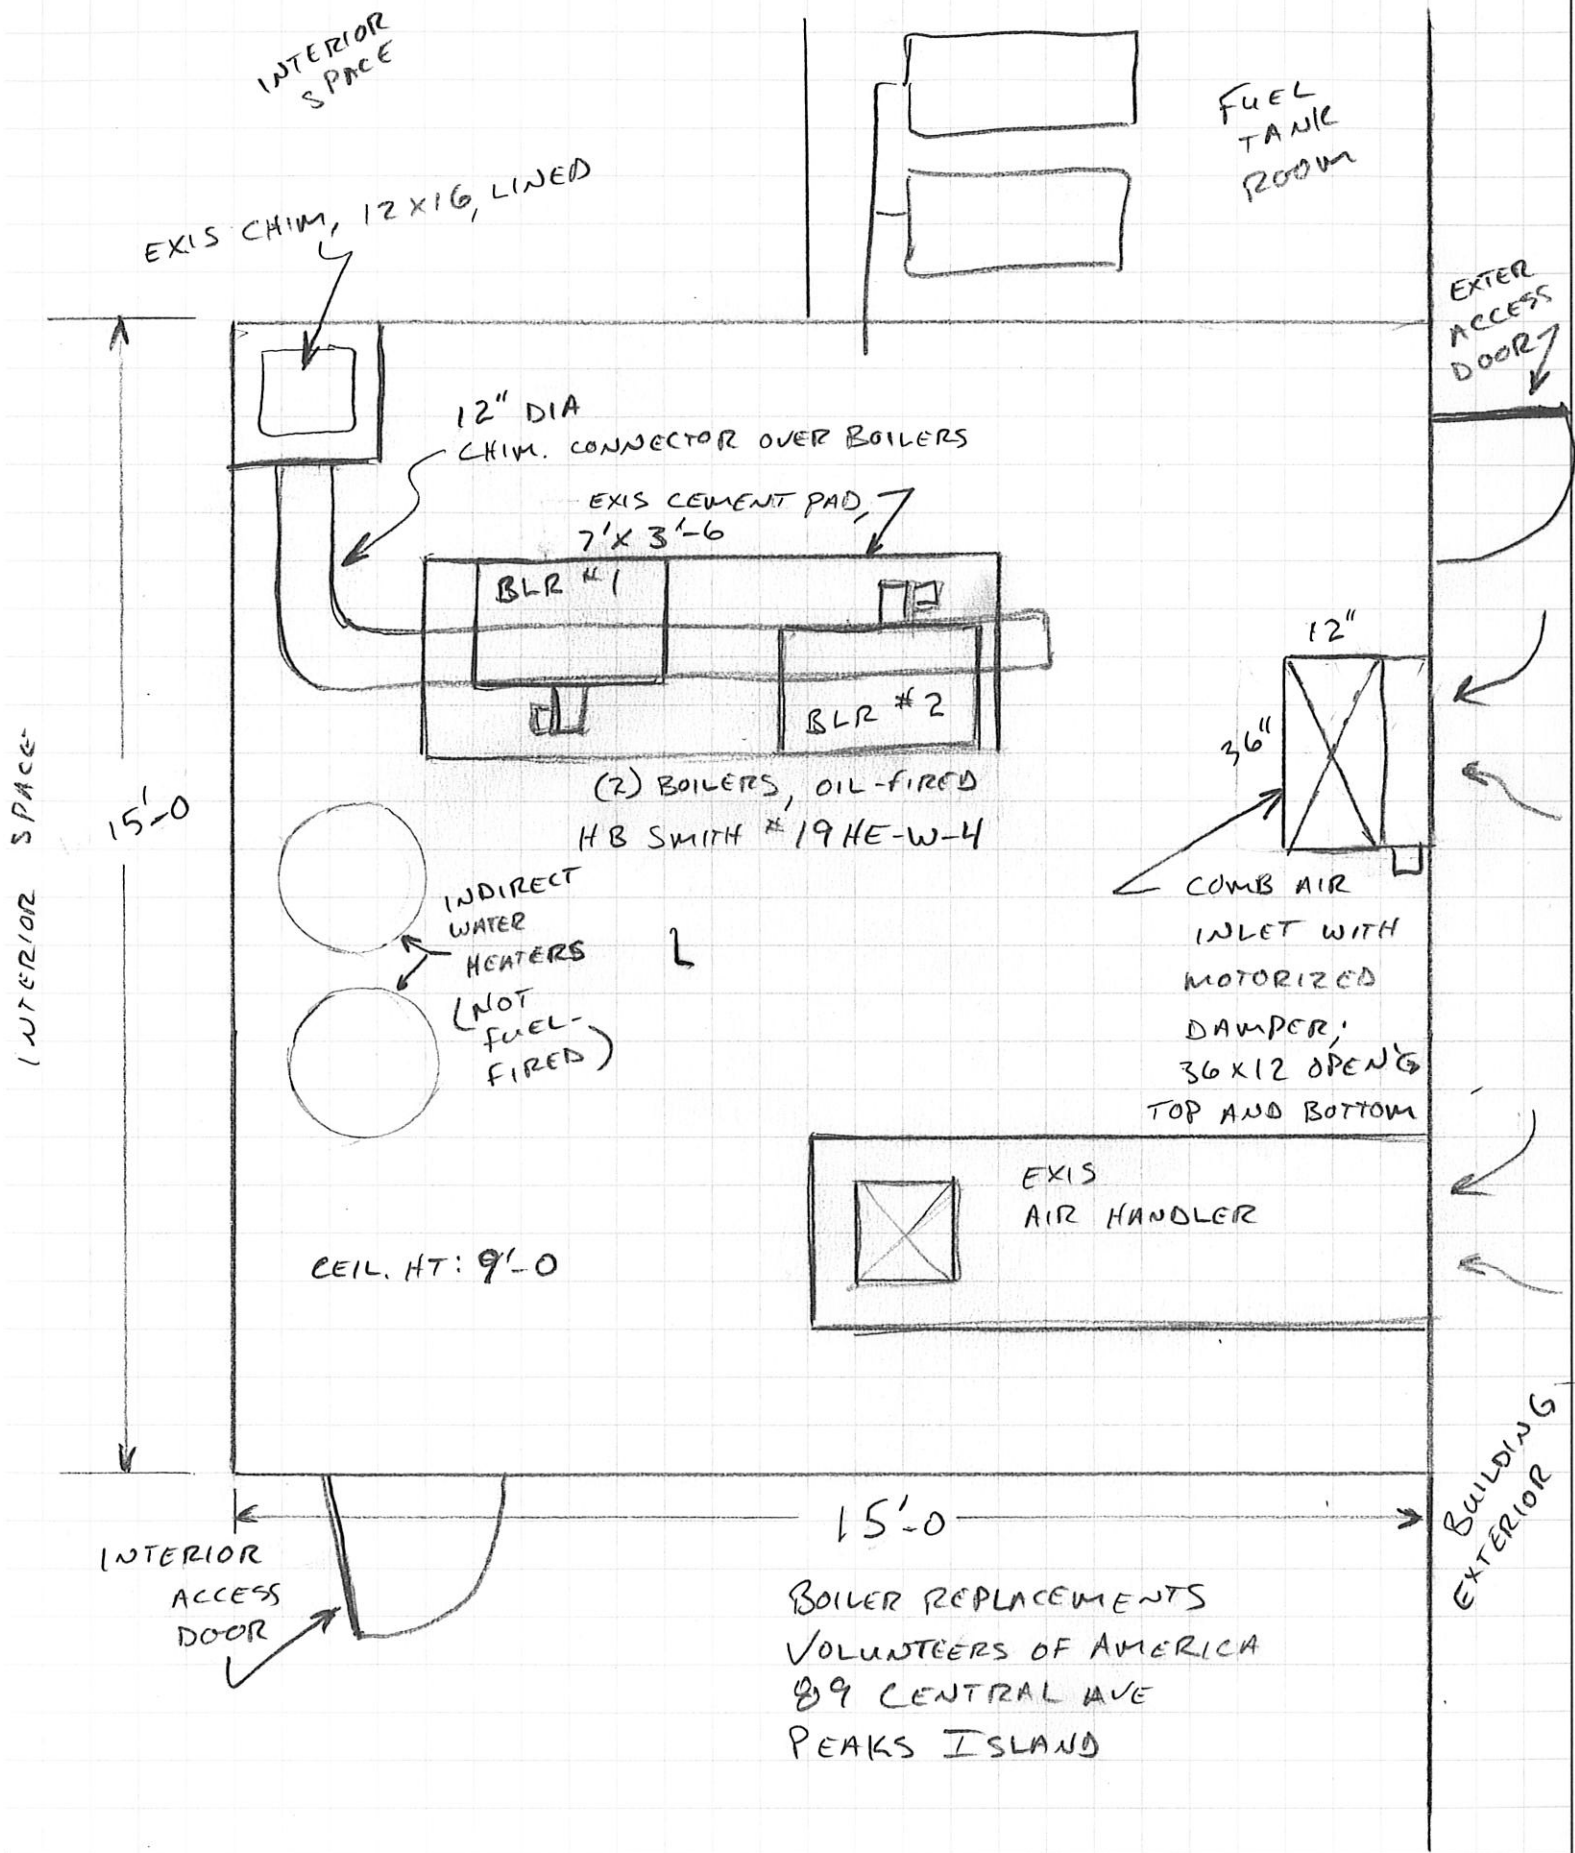 INTERIOR
SPACE
FUEL
TANK
ROOM
EXIS CHIM, 12X16, LINED
EXTER
ACCESS
DOOR
12" DIA
CHIM. CONNECTOR OVER BOILERS
EXIS CEMENT PAD,
7' X 3'-6
BLR #1
BLR #2
12"
36"
(2) BOILERS, OIL-FIRED
HB SMITH #19HE-W-4
INTERIOR SPACE
15'-0
INDIRECT
WATER
HEATERS
(NOT
FUEL-
FIRED)
L
COMB AIR
INLET WITH
MOTORIZED
DAMPER;
36X12 OPEN'G
TOP AND BOTTOM
EXIS
AIR HANDLER
CEIL. HT: 9'-0
BUILDING
EXTERIOR
15'-0
INTERIOR
ACCESS
DOOR
BOILER REPLACEMENTS
VOLUNTEERS OF AMERICA
89 CENTRAL AVE
PEAKS ISLAND